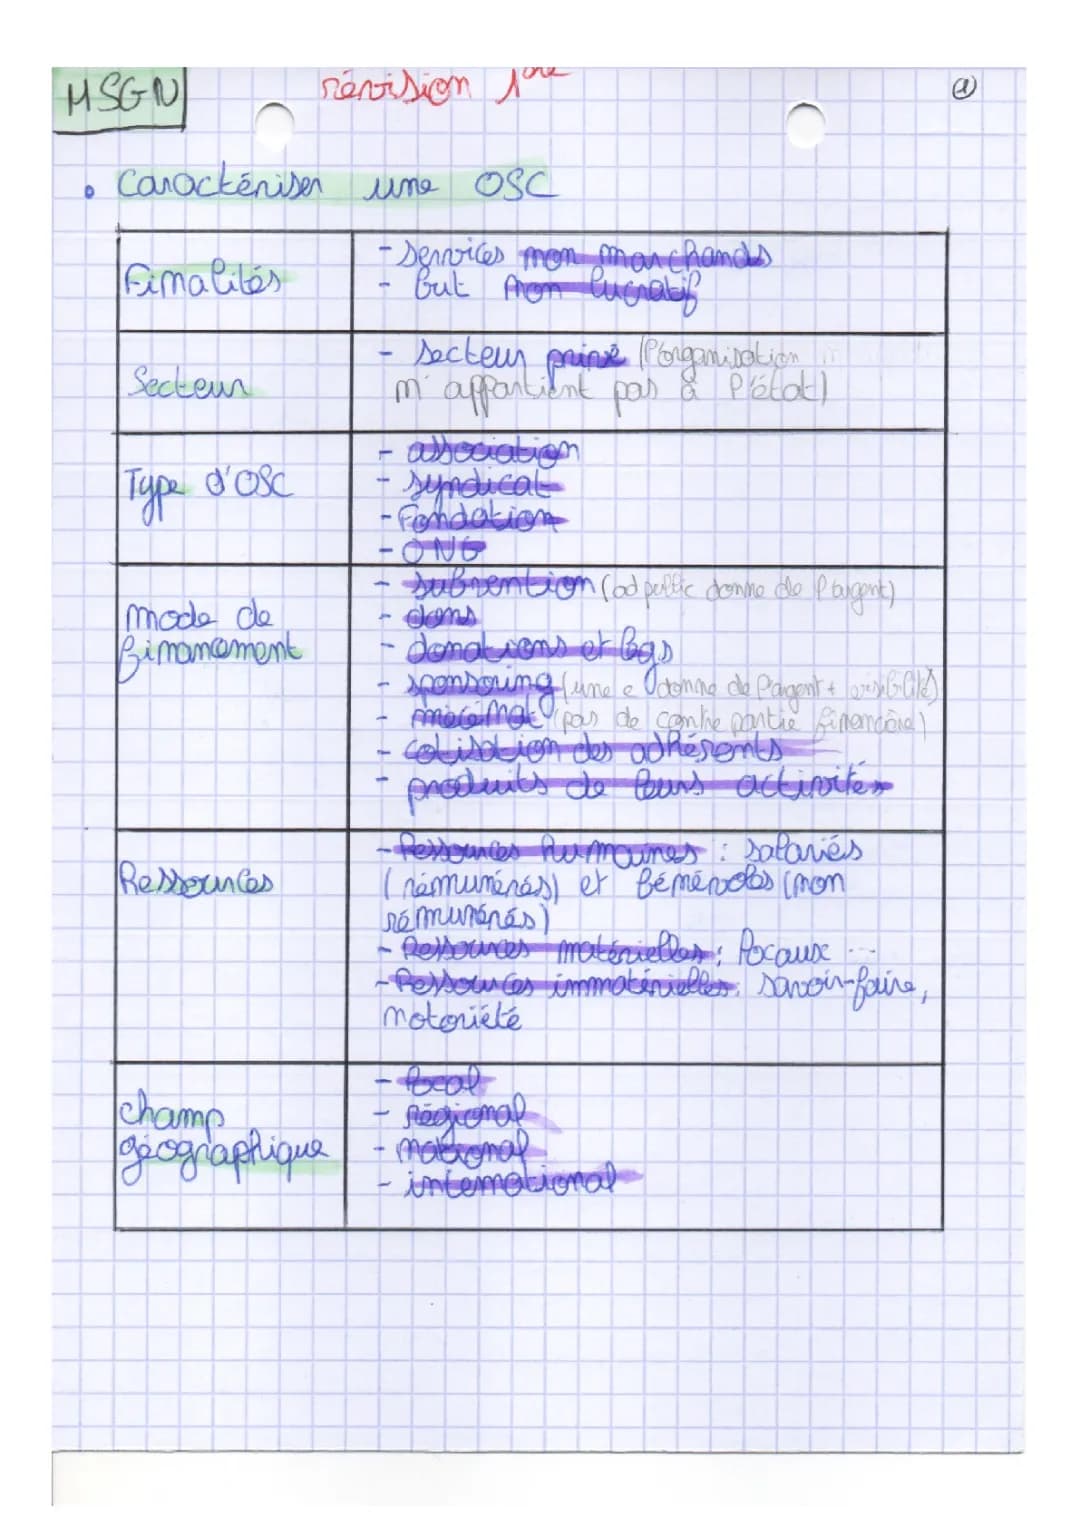 MSGN
révision 1ère
①
• Caractériser une OSC
Finalités
- Services non marchands
- but non lucratif
Secteur
- secteur privé (l'organisation
n'appartient pas à l'état)
Type d'OSC
- association
- syndicat
- Fondation
- ONG
mode de
financement
- subvention (ad public donne de l'argent)
- dons
- donations et legs
- sponsoring (une e donne de l'argent + visibilité)
- mécénat (pas de contre partie financière)
- cotisation des adhérents
- produits de leurs activités
Ressources
- Ressources humaines : salariés
(rémunérés) et bénévoles (non
rémunérés)
- Ressources matérielles : locaux ...
- Ressources immatérielles : savoir-faire,
notoriété
champ
géographique
- local
- régional
- national
- international